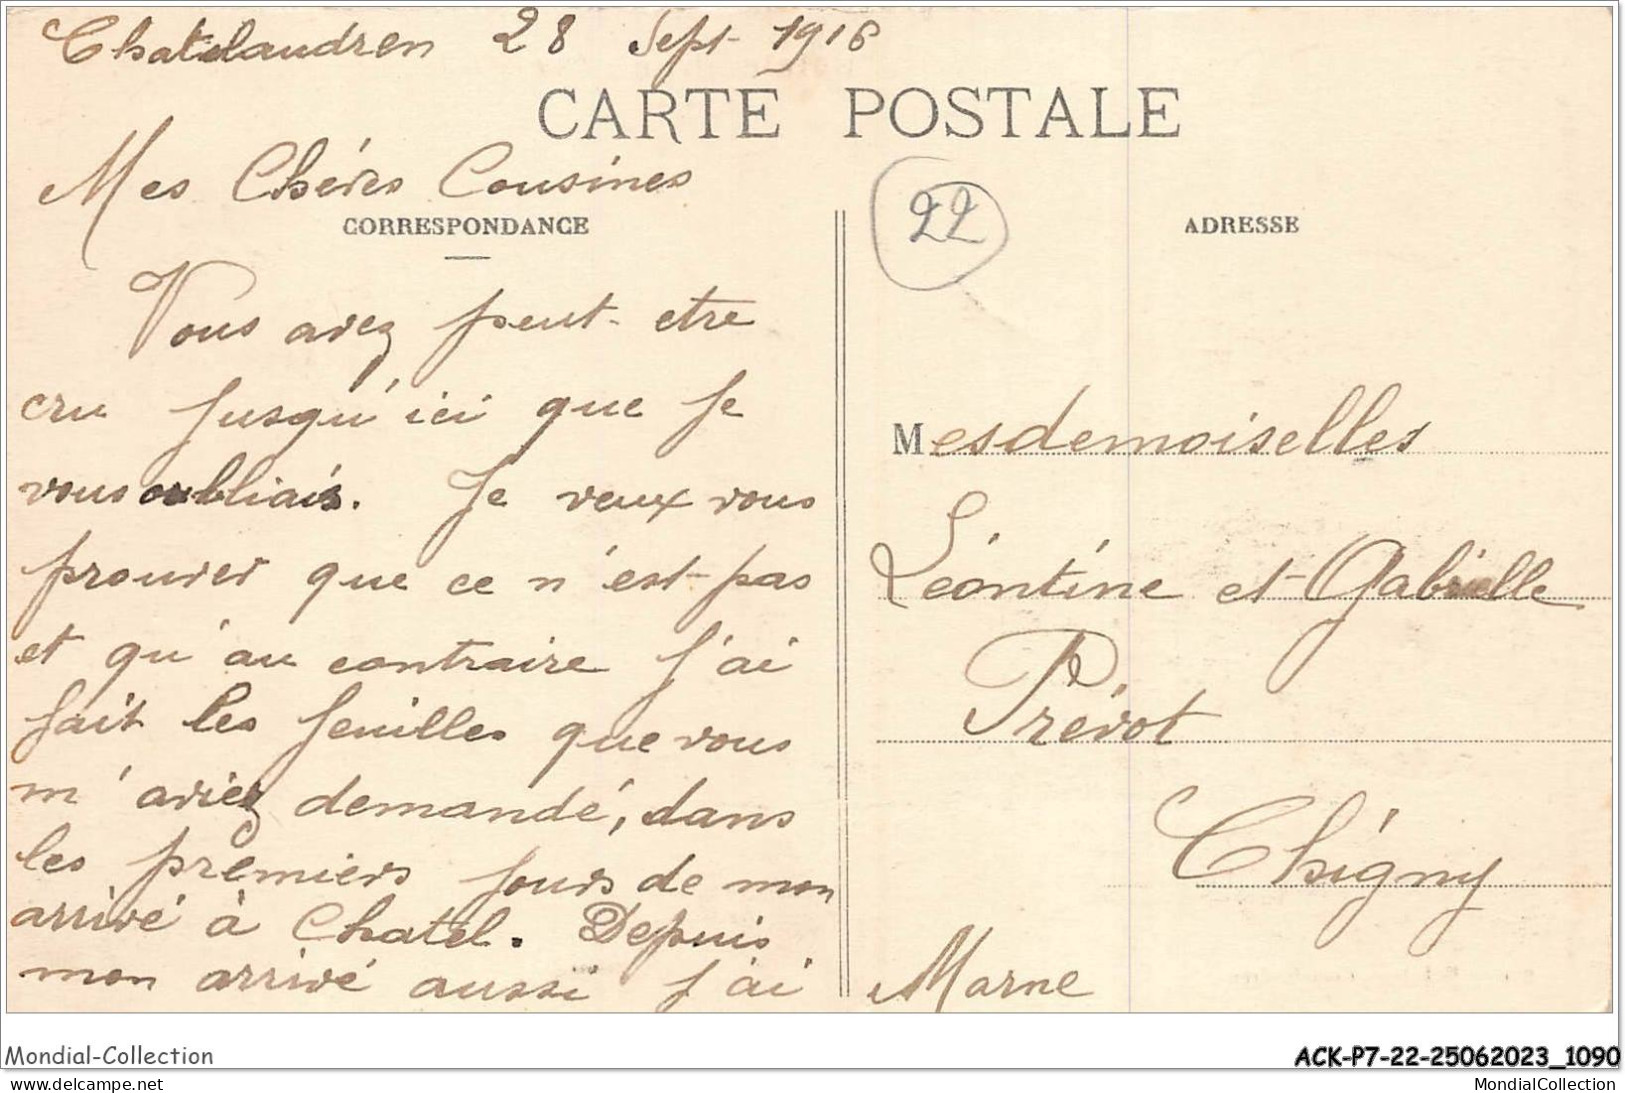 Chatelaudren 28 Sept 1916
CARTE POSTALE
Mes Chéres Cousines
CORRESPONDANCE
Vous avez peut-etre
cru jusqu'ici que je
vous oubliais. Je veux vous
prouver que ce n'est pas
et qu'au contraire j'ai
fait les feuilles que vous
m'aviez demandé, dans
les premiers jours de mon
arrivé à Chatel. Depuis
mon arrivé aussi j'ai
22
ADRESSE
Mesdemoiselles
Léontine et Gabrielle
Prévot
Chigny
Marne
Mondial-Collection
ACK-P7-22-25062023_1090
on delcampe.net
MondialCollection